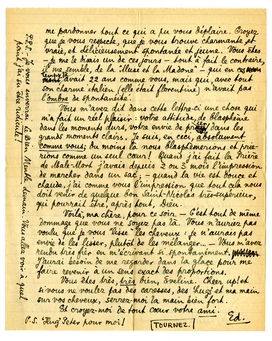 me pardonner tout ce qui a pu vous déplaire. Croyez
que je vous respecte, que je vous trouve charmante et
vraie, et délicieusement spontanée et jeune. Vous êtes
- je ne le hais un de ces jours - tout à fait le contraire,
"de la Muse et la Madone" - qui en
avait 22 ans comme vous, mais qui, avec tout
son charme italien (elle était florentine) n'avait pas
l'ombre de spontanéité.
Vous m'avez dit dans cette lettre-ci une chose qui
m'a fait un réel plaisir : votre attitude, de Blasphème
dans les moments durs, votre envie de prier dans les
grands moments clairs. Je suis, en ceci, absolument
comme vous. Du moins nous blasphémerions et prierions
comme un seul cœur. Quand j'ai fait la Prière
de Male-Mort, j'avais depuis 2 ou 3 mois l'impression
de marcher dans un sac; - quand la vie est douce et
claude, j'ai comme vous l'impression que tout cela nous
doit venir de quelque bon Saint-Nicolas très-supérieur,
qui pourrait être, après tout, Dieu.
Voilà, ma chère, pour ce soir - C'est tout de même
dommage que vous ne soyez pas là. Vous n'auriez pas
voulu que je vous "lisse" les cheveux, et je n'aurais pas
envie de les lisser, plutôt de les mélanger... Vous m'avez
rendu très fier en m'écrivant si spontanément,
j'aurai besoin de me regarder dans la glace pour me
faire revenir à un sens exact des proportions.
Vous êtes très, très bien, Eveline. Cheer up! et
si vous ne voulez pas des caresses, des hug! et ma main
sur vos cheveux, serrez-moi la main bien fort.
Et croyez-moi de tout cœur votre ami.
Ed.
P.S. Hug Peter pour moi!
TOURNEZ!
P.P.S. Je vous enverrai demain. Vous allez voir à quel
point j'ai pu être ridicule!